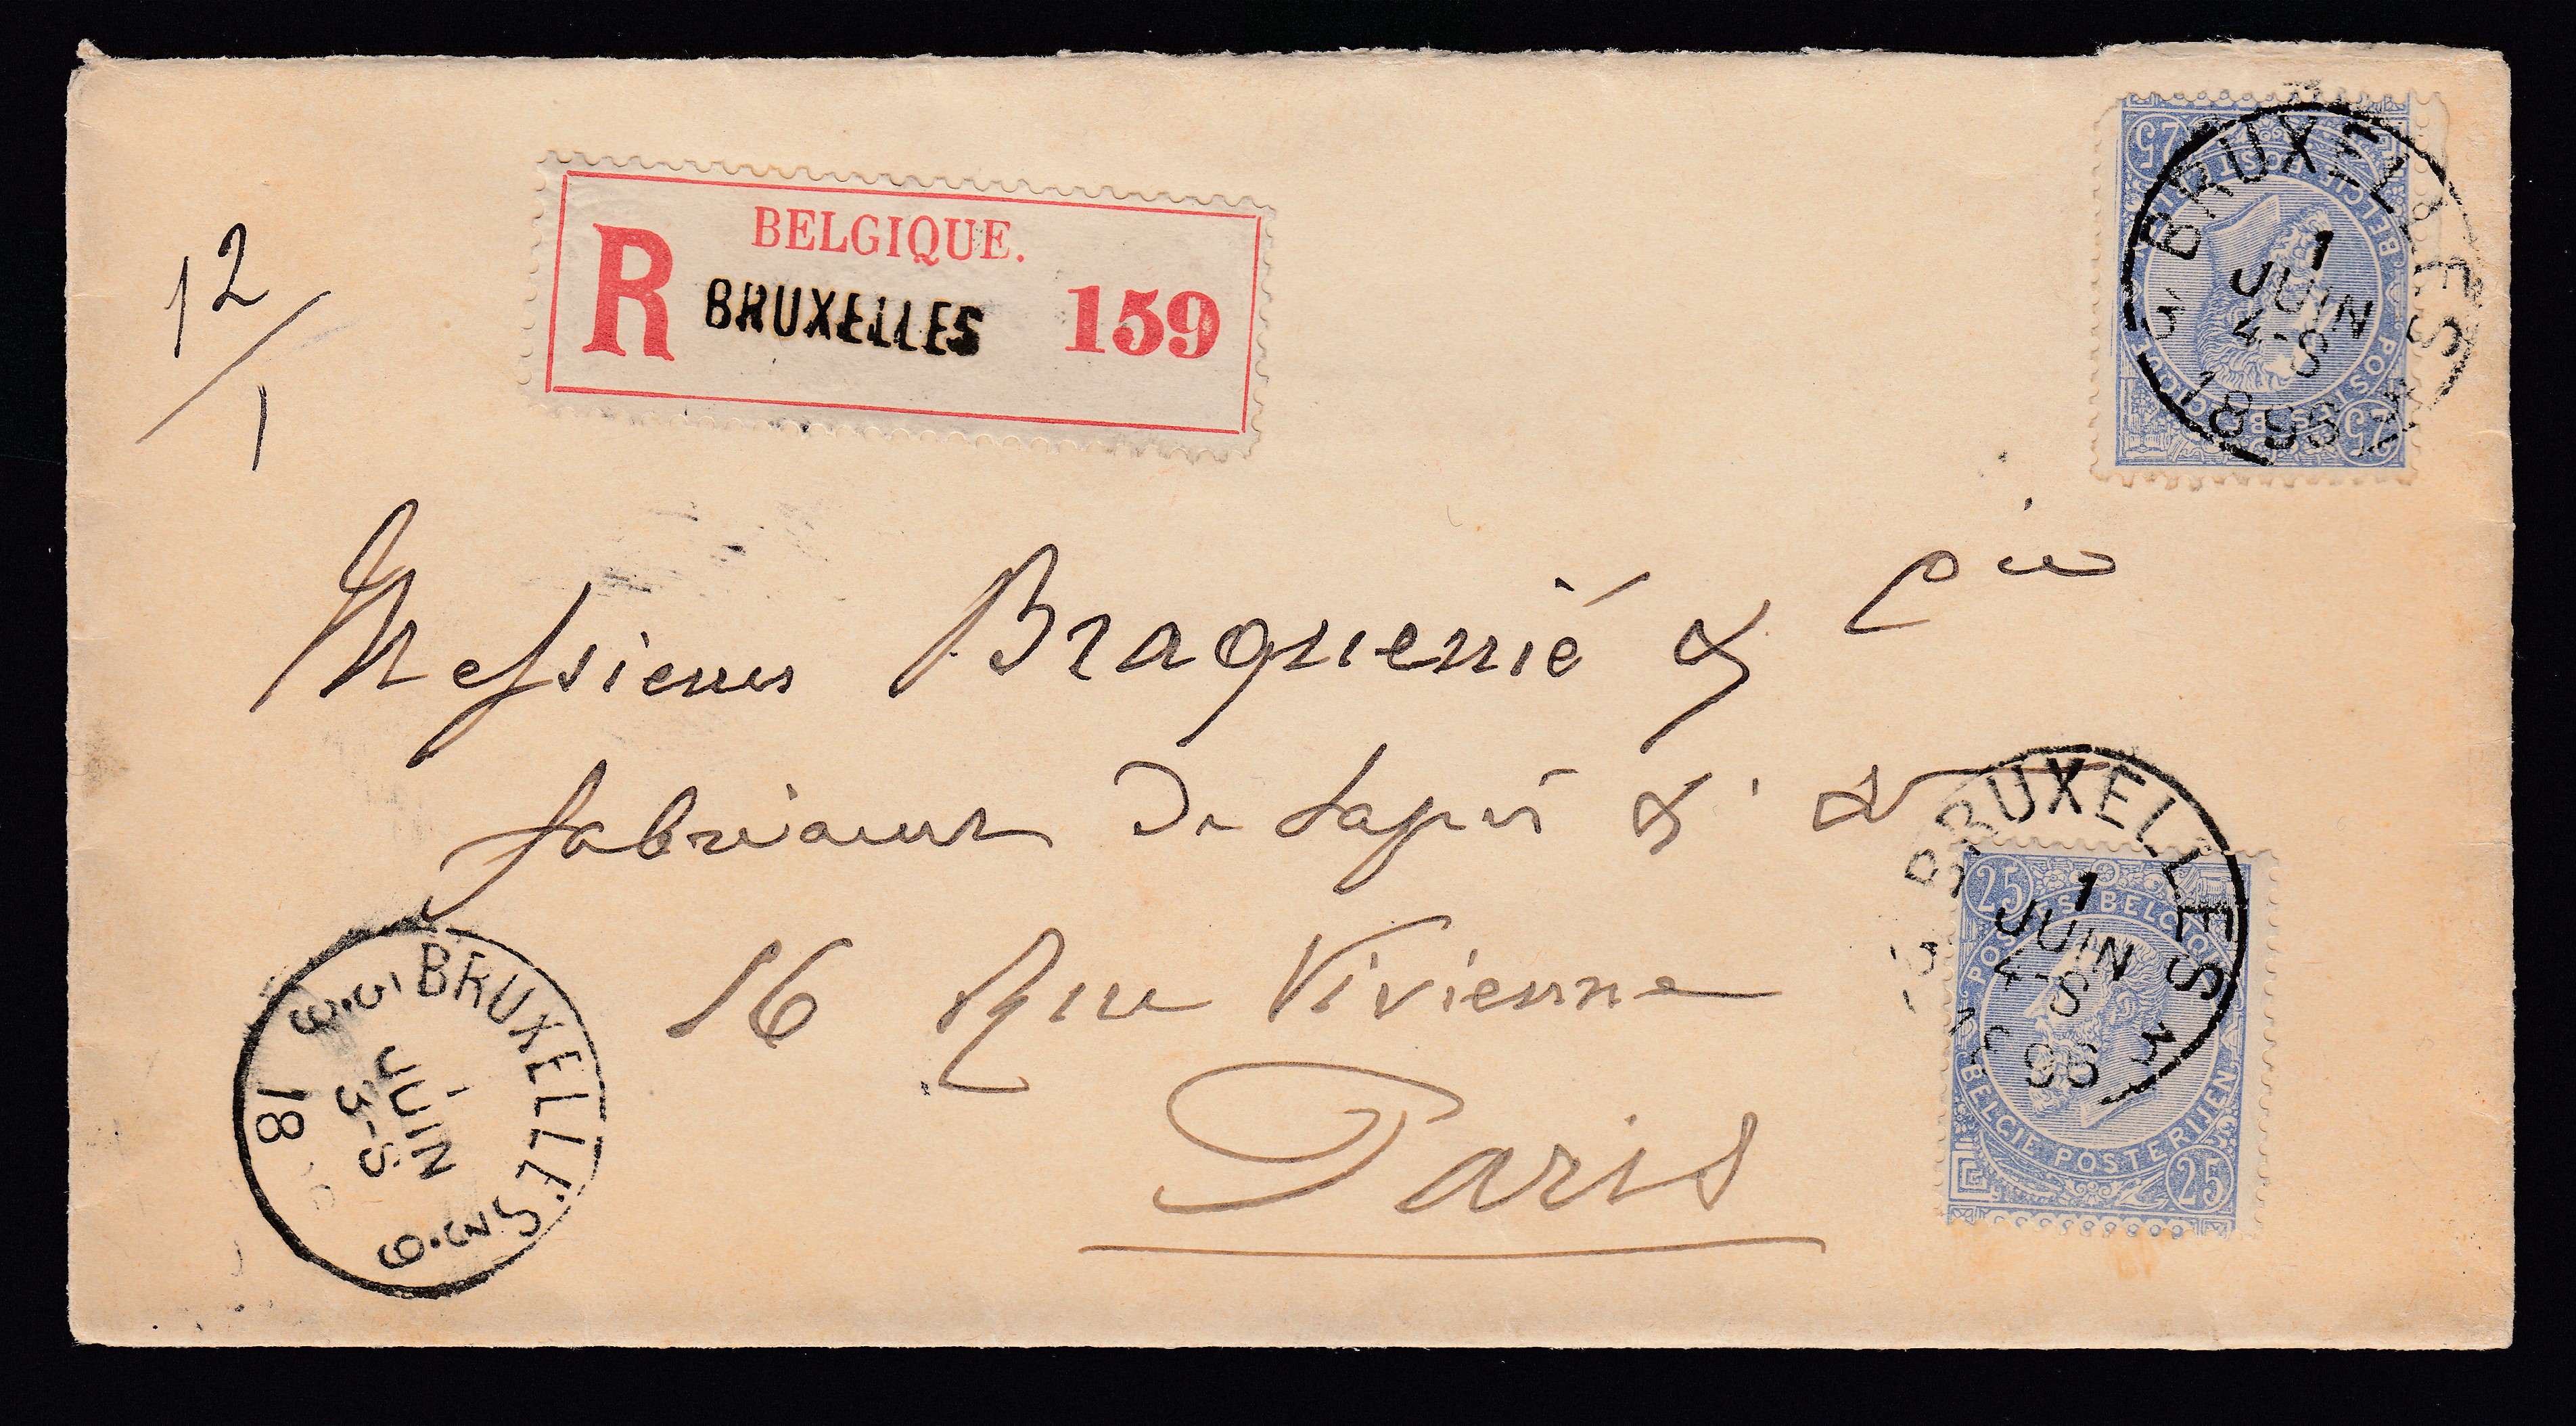 12/1
BELGIQUE.
R BRUXELLES 159
25 POSTES BELGIQUE
BELGIE POSTERIJEN 25
3 BRUXELLES
1
JUIN
4-S
1896
Messieurs Braquenié & Cie
fabricants de tapis &
16 Rue Vivienne
Paris
BRUXELLES
1
JUIN
4-S
96
25 POSTES BELGIQUE
BELGIE POSTERIJEN 25
BRUXELLES
1
JUIN
3-S
18